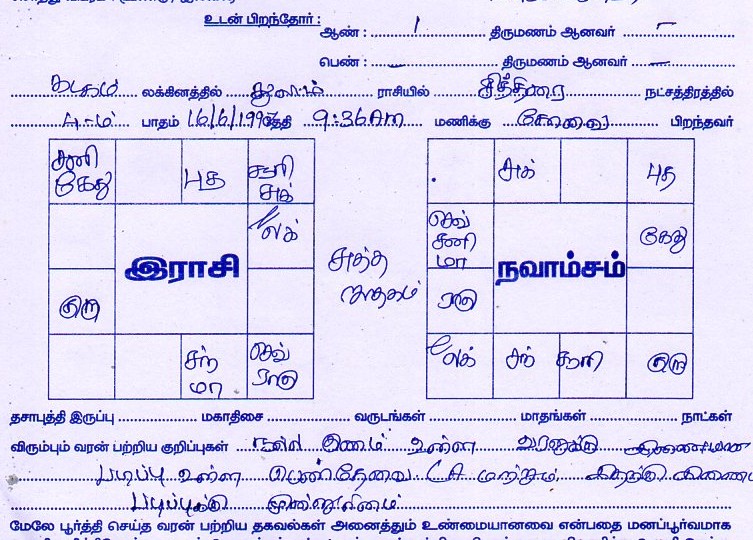 உடன் பிறந்தோர் :
ஆண் : 1 திருமணம் ஆனவர் –
பெண் : – திருமணம் ஆனவர் –
கடகம் லக்கினத்தில் துலாம் ராசியில் சித்திரை நட்சத்திரத்தில்
4-ம் பாதம் 16/6/199 தேதி 9:36 Am மணிக்கு பிறந்தவர்
சனி கேது புத சூரி சுக்
லக்
இராசி
சுத்த ஜாதகம்
குரு
சந் மா செவ் ராகு
சுக் புத
செவ் சனி மா கேது
நவாம்சம்
ராகு
லக் சந் சூரி குரு
தசாபுத்தி இருப்பு மகாதிசை வருடங்கள் மாதங்கள் நாட்கள்
விரும்பும் வரன் பற்றிய குறிப்புகள் நல்ல குணம் உள்ள வரனுக்கு இணையான
படிப்பு உள்ள பெண் தேவை CA மற்றும் அதற்கு இணை
படிப்புக்கு முன்னுரிமை
மேலே பூர்த்தி செய்த வரன் பற்றிய தகவல்கள் அனைத்தும் உண்மையானவை என்பதை மனப்பூர்வமாக